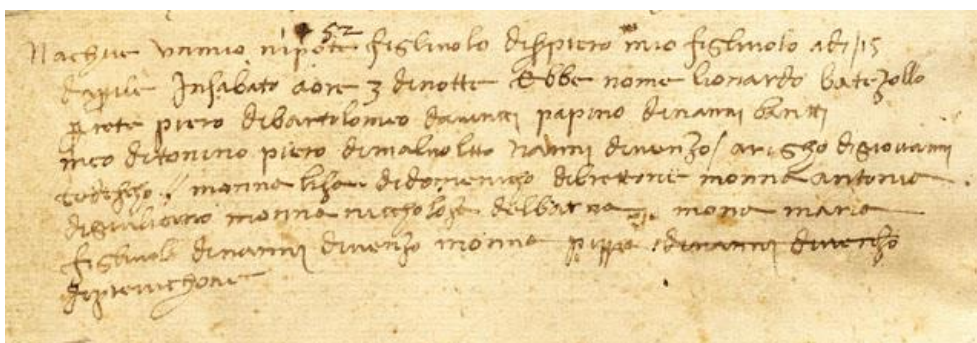 52
Nachue unmio nipote figlivolo diserpiero mio figlivolo adi 15
daprile Insabato aore 3 dinotte Ebbe nome lionardo batezollo
prete piero dibartolomeo davinci papino dinanni bantti
meo ditonino piero dimalvolto Nanni divenzo / arigho digiovanni
tedescho / monna lisa didomenicho dibrettone monna antonia
digiuliano monna niccholosa delbarna mona maria
figlivola dinanni divenzo monna pippa dinanni divenzo
diprevichone